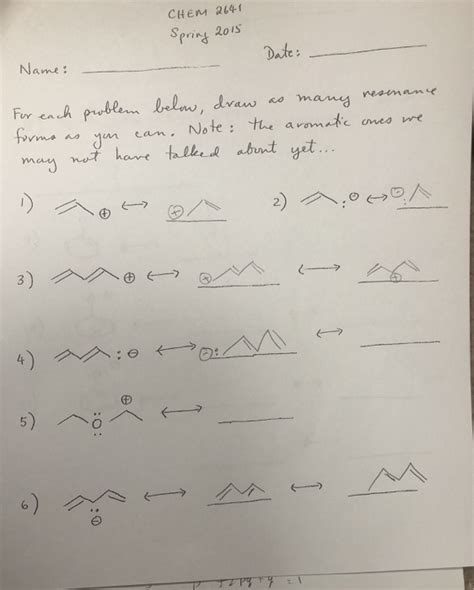 CHEM 2641
Spring 2015
Name: Date:
For each problem below, draw as many resonance
forms as you can. Note: the aromatic ones we
may not have talked about yet...
1) ⊕ ↔ ⊕ 2) :⊖ ↔ ⊖:
3) ⊕ ↔ ⊕ ↔ ⊕
4) :⊖ ↔ ⊖: ↔
5) O ⊕ ↔
6) ⊖ ↔ ↔